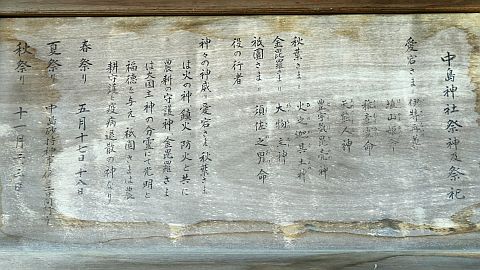 中島神社祭神及祭祀
愛宕さま
伊弉再尊
埴山姫命
稚産霊命
天熊人神
豊受気毘売神
秋葉さま
火之迦具土神
金毘羅さま
大物主神
祇園さま
須佐之男命
役の行者
神々の神威 愛宕さま 秋葉さま
は火の神 鎮火 防火と共に
農耕の守護神 金毘羅さま
は大国主神の分霊にて光明と
福徳を与え 祇園さまは農
耕守護 疫病退散の神なり
春祭り 五月十七日 十八日
夏祭り 中島
秋祭り 十一月二、三日